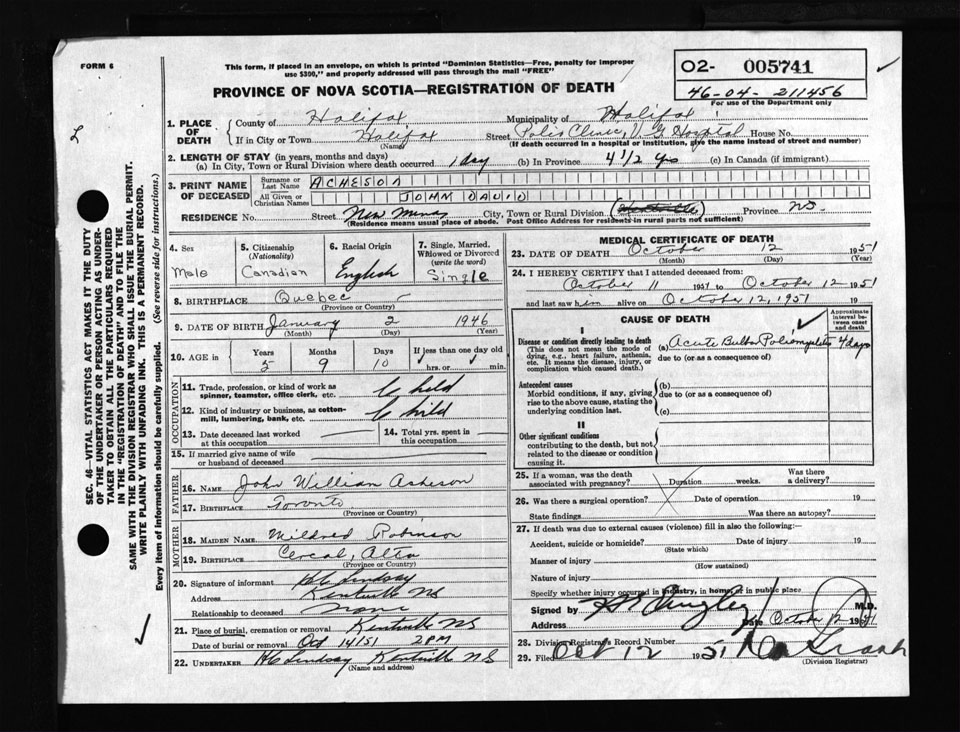 FORM 6
This form, if placed in an envelope, on which is printed "Dominion Statistics—Free, penalty for improper
use $300," and properly addressed will pass through the mail "FREE"
PROVINCE OF NOVA SCOTIA—REGISTRATION OF DEATH
O2- 005741
46-04- 211456
For use of the Department only
1. PLACE OF DEATH
County of Halifax Municipality of Halifax
If in City or Town Halifax Street Polio Clinic, V G Hospital House No.
(Name) (If death occurred in a hospital or institution, give the name instead of street and number)
2. LENGTH OF STAY (in years, months and days)
(a) In City, Town or Rural Division where death occurred 1 day (b) In Province 4 1/2 yrs (c) In Canada (if immigrant)
3. PRINT NAME OF DECEASED
Surname or Last Name ACHESON
All Given or Christian Names JOHN DAVID
RESIDENCE No. Street New Minas City, Town or Rural Division Province NS.
(Residence means usual place of abode. Post Office Address for residents in rural parts not sufficient)
4. Sex
Male
5. Citizenship (Nationality)
Canadian
6. Racial Origin
English
7. Single, Married, Widowed or Divorced (write the word)
Single
8. BIRTHPLACE Quebec
(Province or Country)
9. DATE OF BIRTH January 2 1946
(Month) (Day) (Year)
10. AGE in Years Months Days If less than one day
5 9 10 hrs. or min.
OCCUPATION
11. Trade, profession, or kind of work as spinner, teamster, office clerk, etc. Child
12. Kind of industry or business, as cotton-mill, lumbering, bank, etc. Child
13. Date deceased last worked at this occupation
14. Total yrs. spent in this occupation
15. If married give name of wife or husband of deceased
FATHER
16. NAME John William Acheson
17. BIRTHPLACE Toronto
(Province or Country)
MOTHER
18. MAIDEN NAME Mildred Robinson
19. BIRTHPLACE Cereal, Alta
(Province or Country)
20. Signature of informant H C Lindsay
Address Kentville NS
Relationship to deceased None
21. Place of burial, cremation or removal Kentville NS
Date of burial or removal Oct 14/51 2 PM
22. UNDERTAKER H C Lindsay Kentville NS
(Name and address)
MEDICAL CERTIFICATE OF DEATH
23. DATE OF DEATH October 12 1951
(Month) (Day) (Year)
24. I HEREBY CERTIFY that I attended deceased from
October 11 1951 to October 12 1951
and last saw him alive on October 12, 1951 19
CAUSE OF DEATH
Approximate interval between onset and death
I
Disease or condition directly leading to death
(This does not mean the mode of dying, e.g., heart failure, asthenia, etc. It means the disease, injury, or complication which caused death.)
(a) Acute Bulbar Poliomyelitis 4 days
due to (or as a consequence of)
Antecedent causes
Morbid conditions, if any, giving rise to the above cause, stating the underlying condition last.
(b)
due to (or as a consequence of)
(c)
II
Other significant conditions contributing to the death, but not related to the disease or condition causing it.
25. If a woman, was the death associated with pregnancy? Duration weeks. Was there a delivery?
26. Was there a surgical operation? Date of operation 19
State findings Was there an autopsy?
27. If death was due to external causes (violence) fill in also the following:—
Accident, suicide or homicide? Date of injury 19
(State which)
Manner of injury
(How sustained)
Nature of injury
Specify whether injury occurred in industry, in home, or in public place
Signed by M.D.
Address Date October 12 1951
28. Division Registrars Record Number
29. Filed Oct 12 1951
(Division Registrar)
SEC. 46—VITAL STATISTICS ACT MAKES IT THE DUTY
OF THE UNDERTAKER OR PERSON ACTING AS UNDER-
TAKER TO OBTAIN ALL THE PARTICULARS REQUIRED
IN THE "REGISTRATION OF DEATH" AND TO FILE THE
SAME WITH THE DIVISION REGISTRAR WHO SHALL ISSUE THE BURIAL PERMIT.
WRITE PLAINLY WITH UNFADING INK. THIS IS A PERMANENT RECORD.
Every item of information should be carefully supplied. (See reverse side for instructions.)